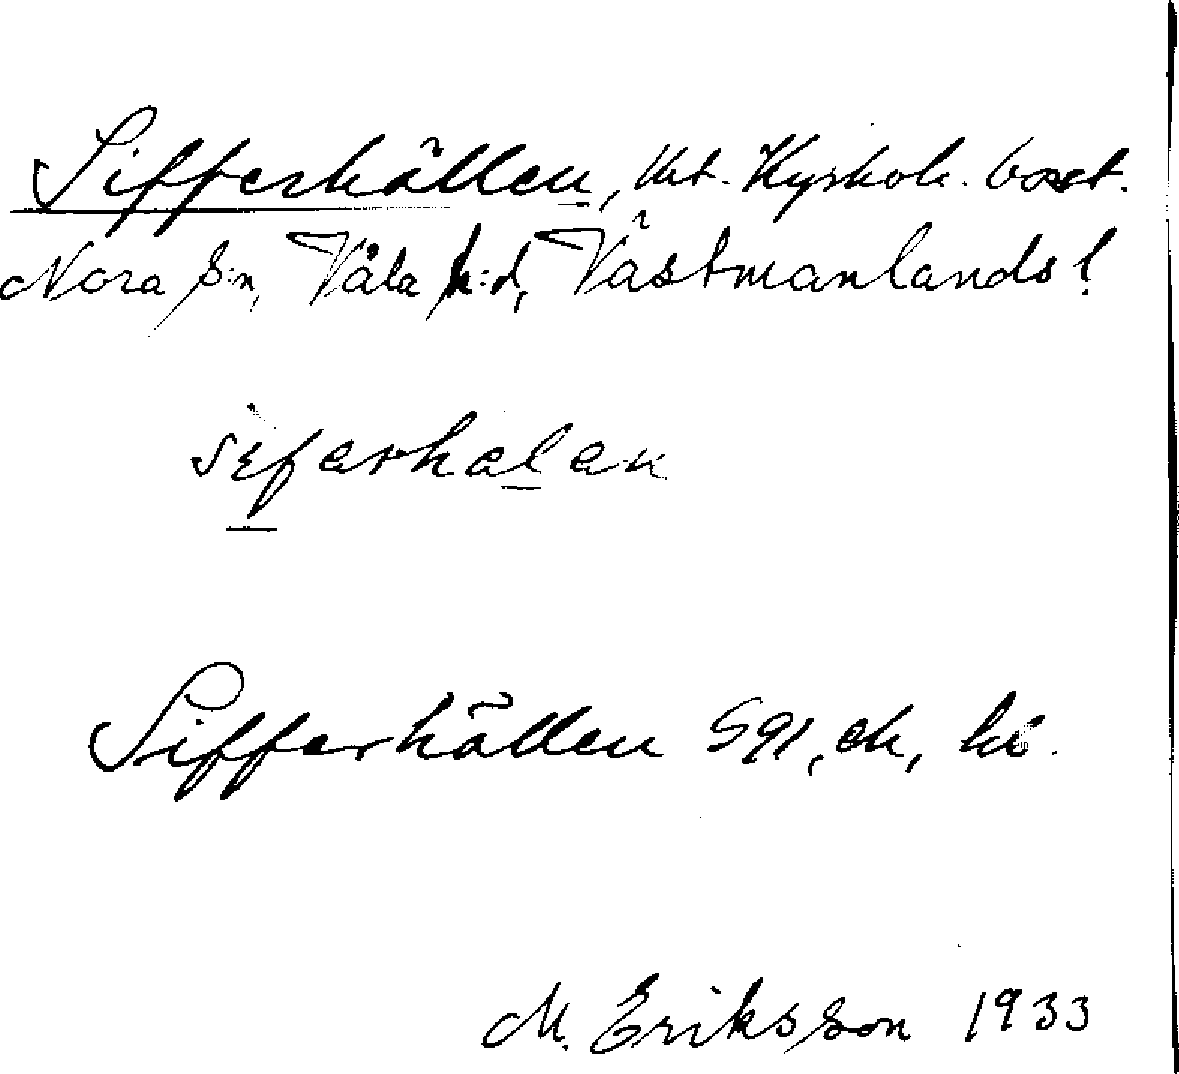 Sifferhällen, Kyrkob. bost.
Nora s:n, Våla h:d, Västmanlands l.
sifarhalan
Sifferhällen
M. Eriksson 1933